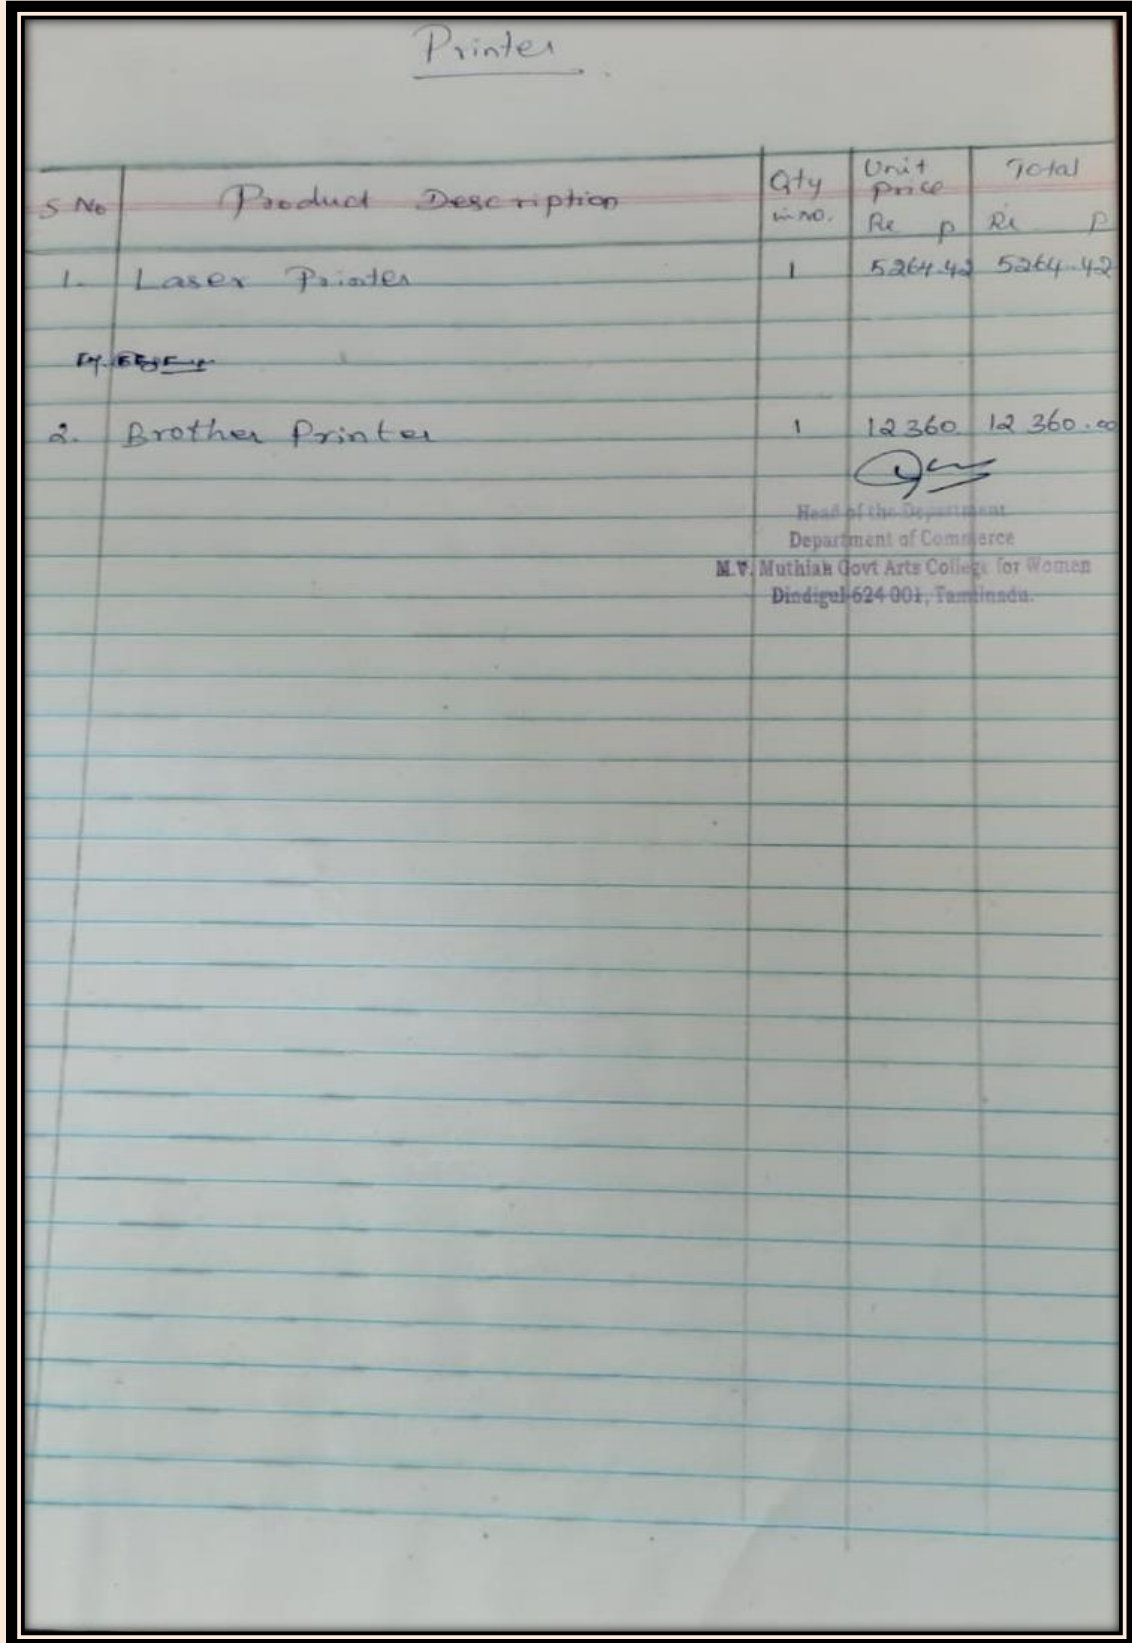 Printer
S No Product Description Qty in no. Unit price Rs P Total Rs P
1. Laser Printer 1 5264.42 5264.42
2. Brother Printer 1 12360 12360.00
Head of the Department
Department of Commerce
M.V. Muthiah Govt Arts College for Women
Dindigul-624 001, Tamilnadu.